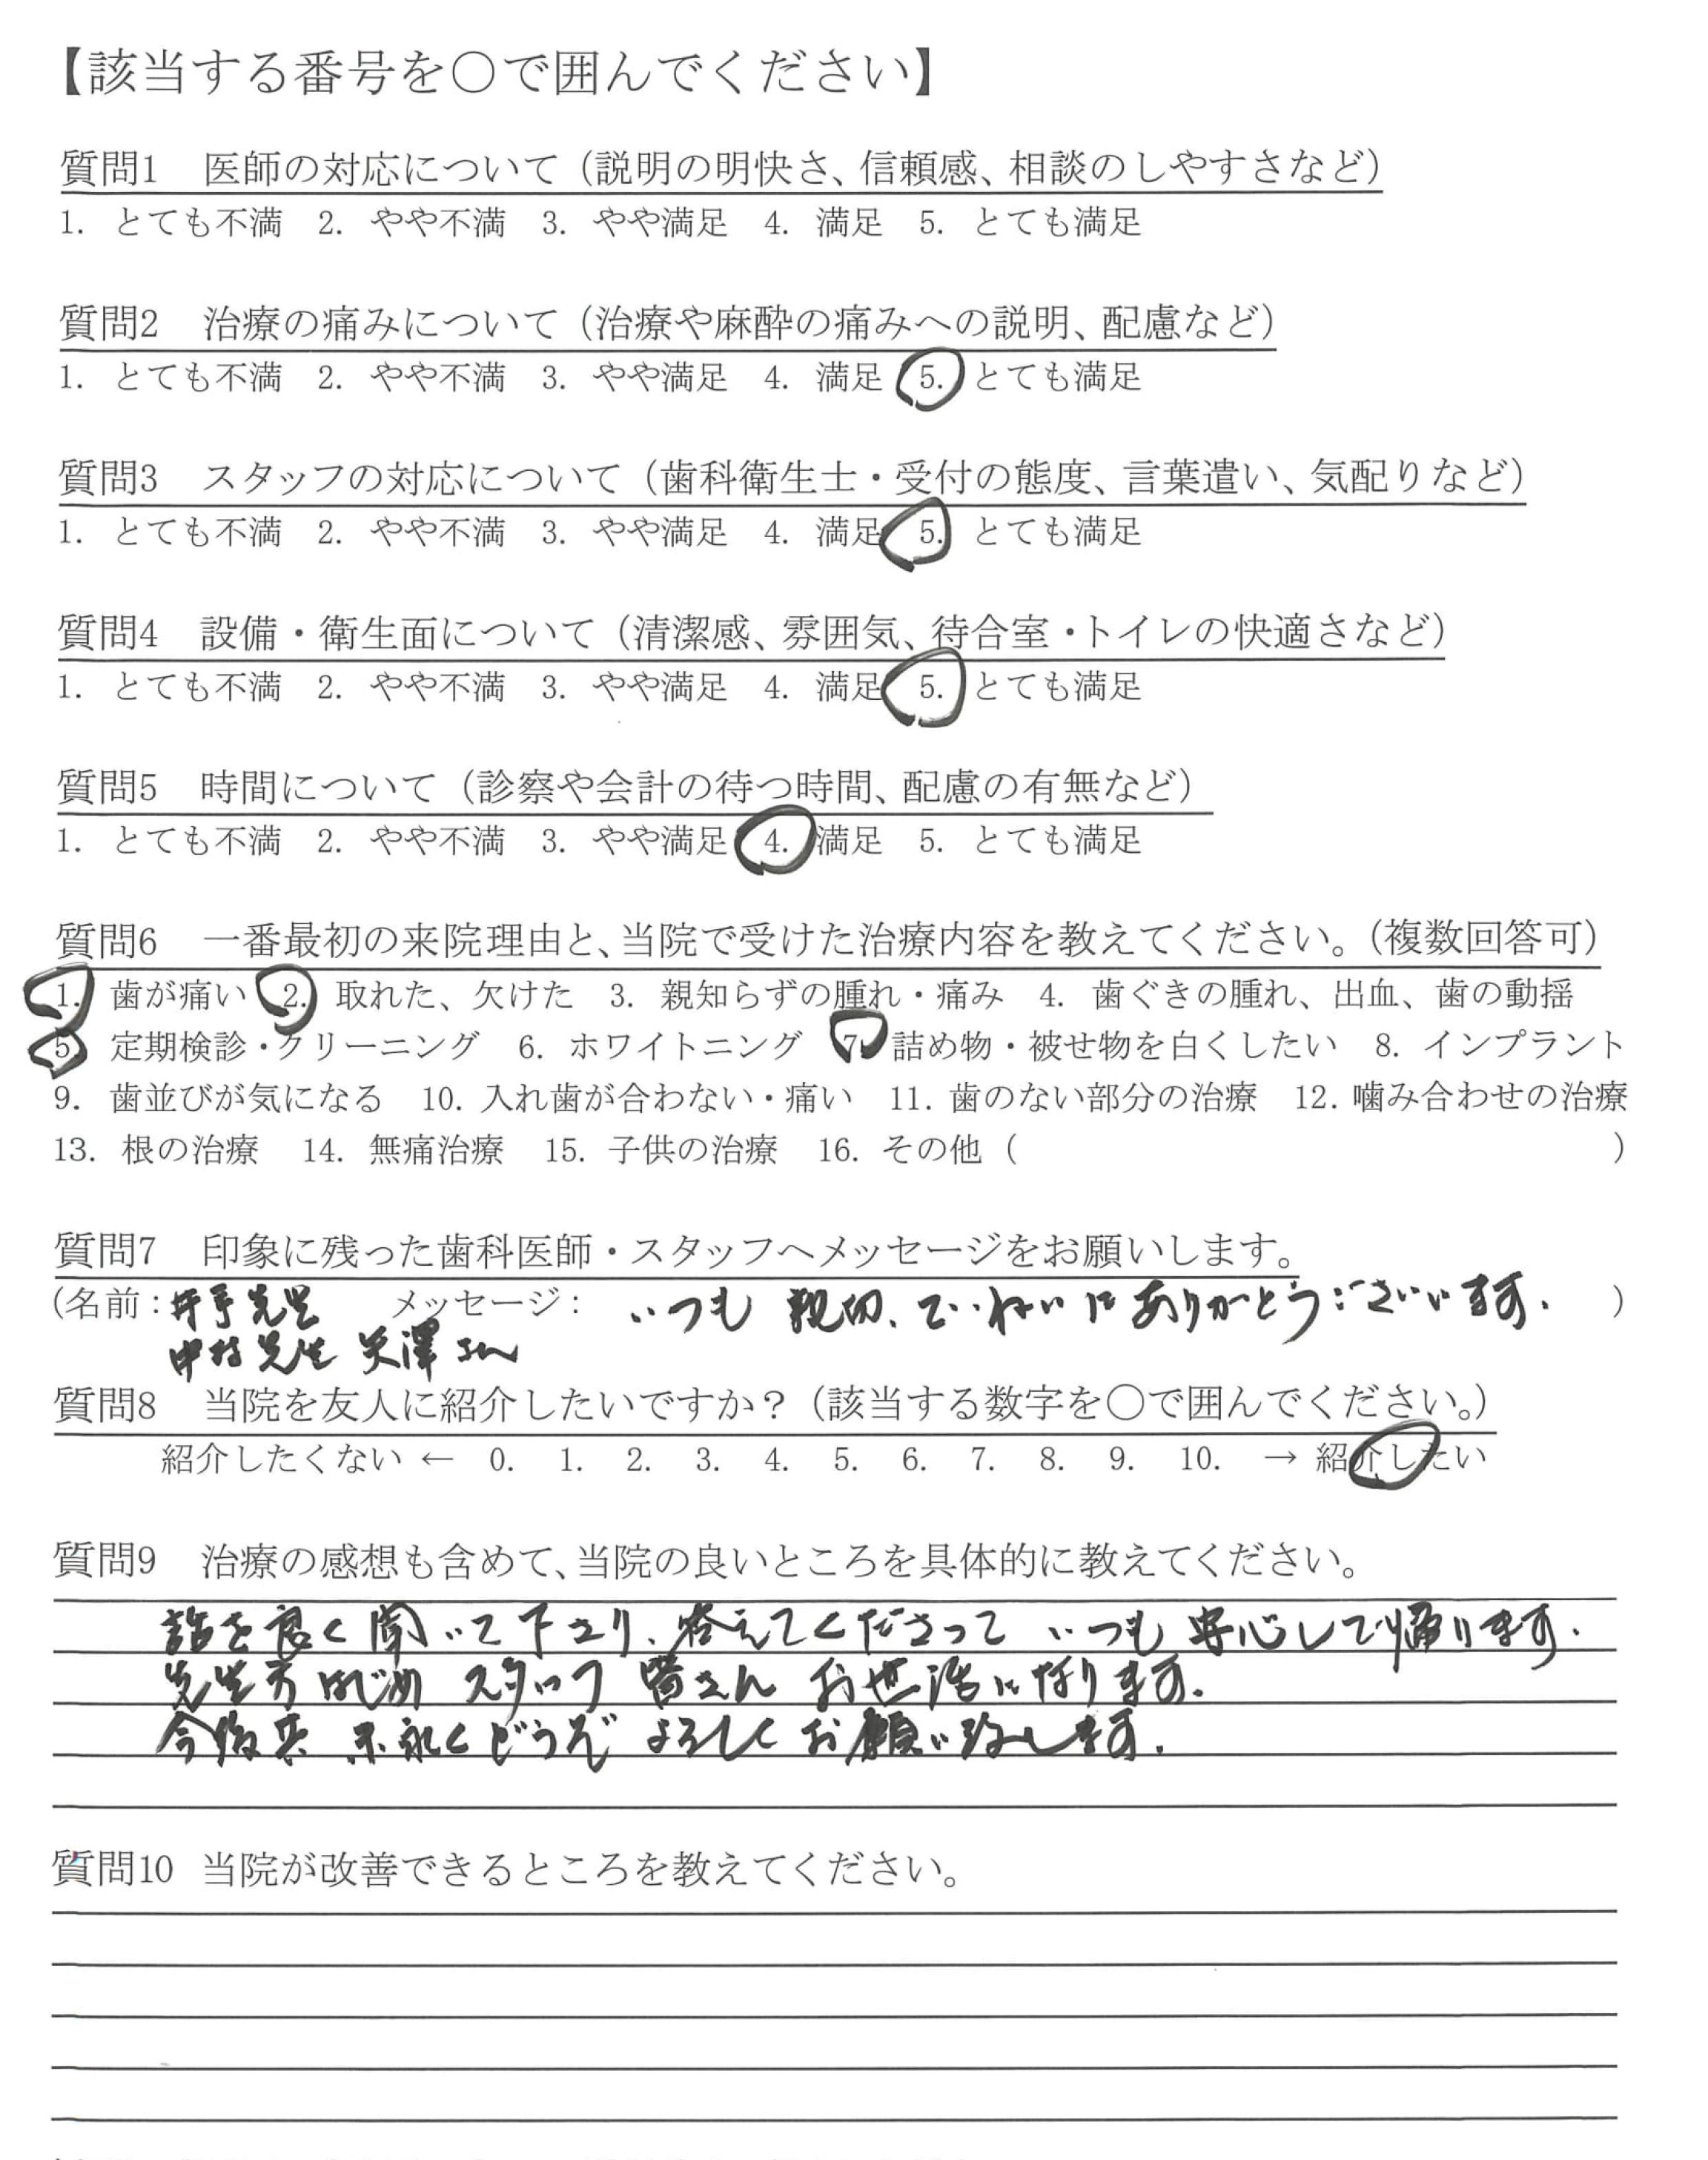 【該当する番号を〇で囲んでください】
質問1　医師の対応について（説明の明快さ、信頼感、相談のしやすさなど）
1. とても不満　2. やや不満　3. やや満足　4. 満足　5. とても満足
質問2　治療の痛みについて（治療や麻酔の痛みへの説明、配慮など）
1. とても不満　2. やや不満　3. やや満足　4. 満足　5. とても満足
質問3　スタッフの対応について（歯科衛生士・受付の態度、言葉遣い、気配りなど）
1. とても不満　2. やや不満　3. やや満足　4. 満足　5. とても満足
質問4　設備・衛生面について（清潔感、雰囲気、待合室・トイレの快適さなど）
1. とても不満　2. やや不満　3. やや満足　4. 満足　5. とても満足
質問5　時間について（診察や会計の待つ時間、配慮の有無など）
1. とても不満　2. やや不満　3. やや満足　4. 満足　5. とても満足
質問6　一番最初の来院理由と、当院で受けた治療内容を教えてください。（複数回答可）
1. 歯が痛い　2. 取れた、欠けた　3. 親知らずの腫れ・痛み　4. 歯ぐきの腫れ、出血、歯の動揺
5. 定期検診・クリーニング　6. ホワイトニング　7. 詰め物・被せ物を白くしたい　8. インプラント
9. 歯並びが気になる　10. 入れ歯が合わない・痛い　11. 歯のない部分の治療　12. 噛み合わせの治療
13. 根の治療　14. 無痛治療　15. 子供の治療　16. その他（　　　）
質問7　印象に残った歯科医師・スタッフへメッセージをお願いします。
（名前：井手先生　メッセージ：いつも親切、ていねいにありがとうございます.　）
中村先生 矢澤さん
質問8　当院を友人に紹介したいですか？（該当する数字を〇で囲んでください。）
紹介したくない ← 0. 1. 2. 3. 4. 5. 6. 7. 8. 9. 10. → 紹介したい
質問9　治療の感想も含めて、当院の良いところを具体的に教えてください。
話を良く聞いて下さり、答えてくださって いつも 安心して帰ります.
先生方はじめ スタッフ 皆さん お世話になります.
今後共 末永くどうぞ よろしく お願い致します.
質問10　当院が改善できるところを教えてください。